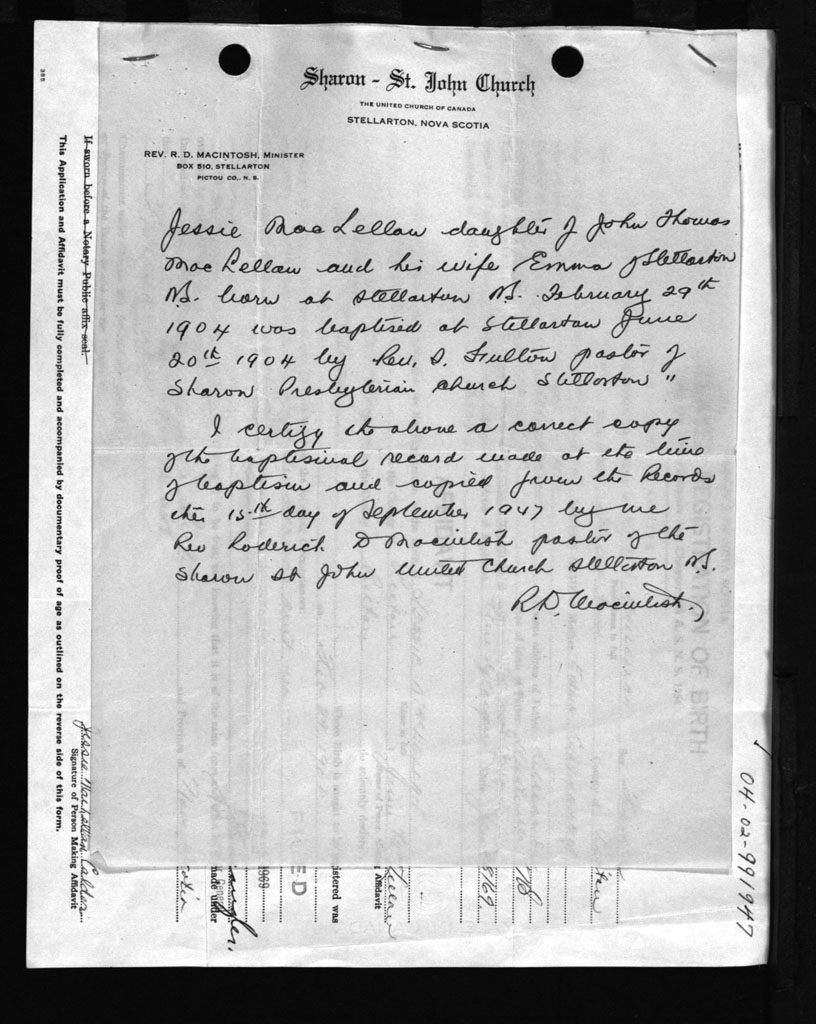 Sharon - St. John Church
THE UNITED CHURCH OF CANADA
STELLARTON, NOVA SCOTIA
REV. R. D. MACINTOSH, MINISTER
BOX 510, STELLARTON
PICTOU CO., N. S.
Jessie MacLellan daughter of John Thomas
MacLellan and his wife Emma of Stellarton
N.S. born at Stellarton N.S. February 29th
1904 was baptised at Stellarton June
20th 1904 by Rev. Fulton pastor of
Sharon Presbyterian Church Stellarton "
I certify the above a correct copy
of the baptismal record made at the time
of baptism and copied from the Records
this 15th day of September 1947 by me
Rev Roderick D Macintosh pastor of the
Sharon St John United Church Stellarton N.S.
R.D. Macintosh.
385
If sworn before a Notary Public affix seal.
This Application and Affidavit must be fully completed and accompanied by documentary proof of age as outlined on the reverse side of this form.
Jessie MacLellan Calder
Signature of Person Making Affidavit
04-02-991947
OF BIRTH
istered was
Affidavit
1969
made under